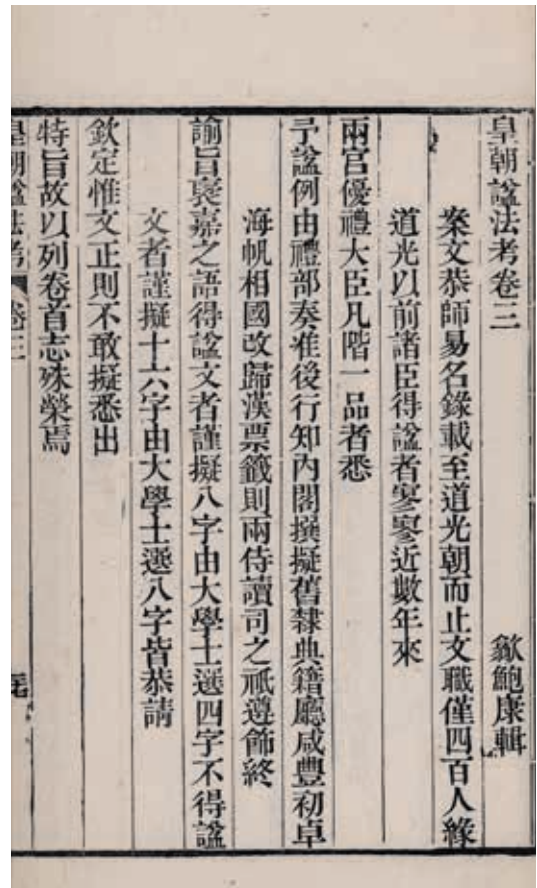 皇朝諡法考卷三
歙鮑康輯
案文恭師易名錄載至道光朝而止文職僅四百人緣
道光以前諸臣得諡者寥寥近數年來
兩宮優禮大臣凡階一品者悉
予諡例由禮部奏准後行知內閣撰擬舊隸典籍廳咸豐初卓
海帆相國改歸漢票籤則兩侍讀司之祇遵飾終
諭旨襃嘉之語得諡文者謹擬八字由大學士選四字不得諡
文者謹擬十六字由大學士選八字皆恭請
欽定惟文正則不敢擬悉出
特旨故以列卷首志殊榮焉
皇朝諡法考 卷三